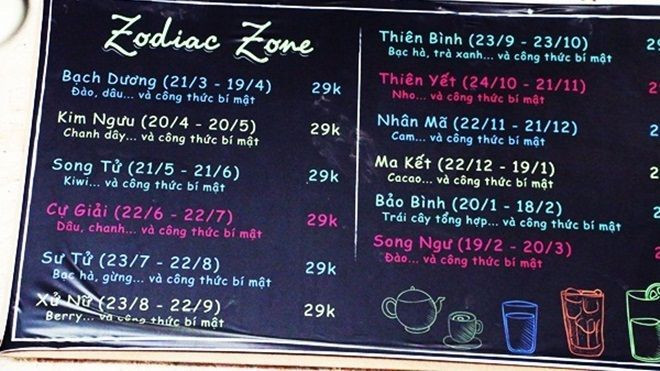 Zodiac Zone
Bạch Dương (21/3 - 19/4) 29k
Đào, dâu... và công thức bí mật
Kim Ngưu (20/4 - 20/5) 29k
Chanh dây... và công thức bí mật
Song Tử (21/5 - 21/6) 29k
Kiwi... và công thức bí mật
Cự Giải (22/6 - 22/7) 29k
Dâu, chanh... và công thức bí mật
Sư Tử (23/7 - 22/8) 29k
Bạc hà, gừng... và công thức bí mật
Xử Nữ (23/8 - 22/9) 29k
Berry... và công thức bí mật
Thiên Bình (23/9 - 23/10) 29
Bạc hà, trà xanh... và công thức bí mật
Thiên Yết (24/10 - 21/11) 2
Nho... và công thức bí mật
Nhân Mã (22/11 - 21/12) 29
Cam... và công thức bí mật
Ma Kết (22/12 - 19/1) 2
Cacao... và công thức bí mật
Bảo Bình (20/1 - 18/2) 2
Trái cây tổng hợp... và công thức bí mật
Song Ngư (19/2 - 20/3) 2
Đào... và công thức bí mật